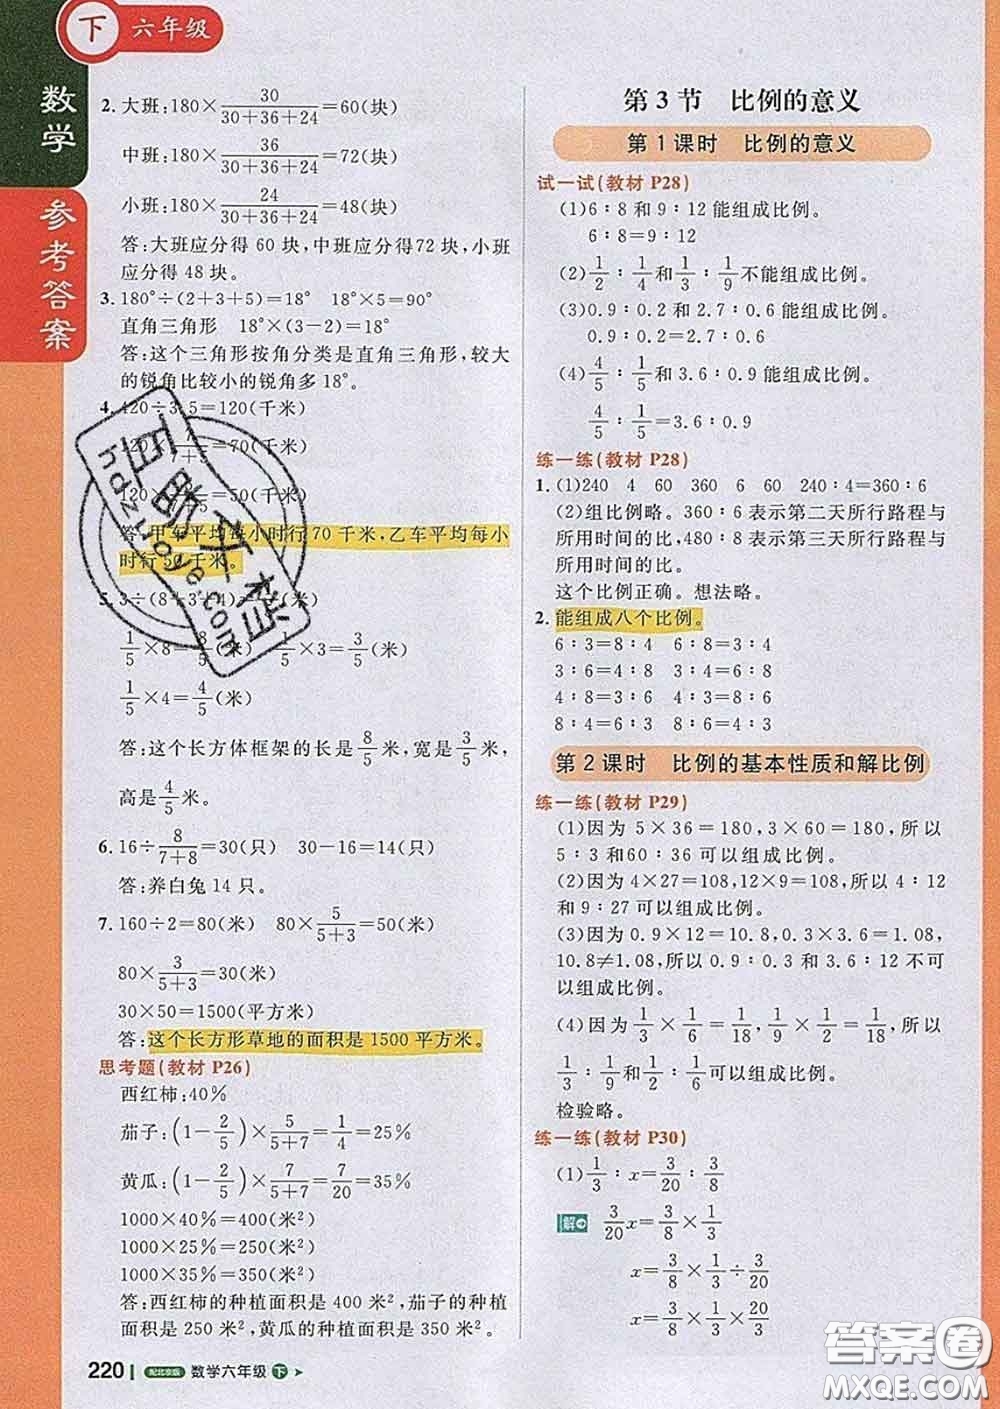 下 六年级
数学
参考答案
2. 大班:180×30/(30+36+24)=60(块)
中班:180×36/(30+36+24)=72(块)
小班:180×24/(30+36+24)=48(块)
答:大班应分得 60 块,中班应分得72 块,小班
应分得 48 块。
3. 180°÷(2+3+5)=18° 18°×5=90°
直角三角形 18°×(3-2)=18°
答:这个三角形按角分类是直角三角形,较大
的锐角比较小的锐角多 18°。
4. 420÷3.5=120(千米)
120×7/(7+5)=70(千米)
=50(千米)
答:甲车平均每小时行 70 千米,乙车平均每小
时行 50 千米。
5. 3÷(8+3+4)=
1/5×8=8/5 ×3=3/5(米)
1/5×4=4/5(米)
答:这个长方体框架的长是8/5米,宽是3/5米,
高是4/5米。
6. 16÷8/(7+8)=30(只) 30-16=14(只)
答:养白兔 14 只。
7. 160÷2=80(米) 80×5/(5+3)=50(米)
80×3/(5+3)=30(米)
30×50=1500(平方米)
答:这个长方形草地的面积是 1500 平方米。
思考题(教材 P26)
西红柿:40%
茄子:(1-2/5)×5/(5+7)=1/4=25%
黄瓜:(1-2/5)×7/(5+7)=7/20=35%
1000×40%=400(米²)
1000×25%=250(米²)
1000×35%=350(米²)
答:西红柿的种植面积是 400 米²,茄子的种植
面积是 250 米²,黄瓜的种植面积是 350 米²。
220 配北京版 数学六年级 下
第 3 节 比例的意义
第 1 课时 比例的意义
试一试(教材 P28)
(1)6∶8 和 9∶12 能组成比例。
6∶8=9∶12
(2)1/2∶1/4和1/3∶1/9不能组成比例。
(3)0.9∶0.2 和 2.7∶0.6 能组成比例。
0.9∶0.2=2.7∶0.6
(4)4/5∶1/5和 3.6∶0.9 能组成比例。
4/5∶1/5=3.6∶0.9
练一练(教材 P28)
1. (1)240 4 60 360 6 60 240∶4=360∶6
(2)组比例略。360∶6 表示第二天所行路程与
所用时间的比,480∶8 表示第三天所行路程与
所用时间的比。
这个比例正确。想法略。
2. 能组成八个比例。
6∶3=8∶4 6∶8=3∶4
3∶6=4∶8 3∶4=6∶8
4∶8=3∶6 4∶3=8∶6
8∶4=6∶3 8∶6=4∶3
第 2 课时 比例的基本性质和解比例
练一练(教材 P29)
(1)因为 5×36=180,3×60=180,所以
5∶3 和60∶36 可以组成比例。
(2)因为 4×27=108,12×9=108,所以 4∶12
和 9∶27 可以组成比例。
(3)因为 0.9×12=10.8,0.3×3.6=1.08,
10.8≠1.08,所以 0.9∶0.3 和 3.6∶12 不可
以组成比例。
(4)因为1/3×1/6=1/18,1/9×1/2=1/18,所以
1/3∶1/9和1/2∶1/6可以组成比例。
检验略。
练一练(教材 P30)
(1)1/3∶x=3/20∶3/8
解 3/20x=3/8×1/3
x=3/8×1/3÷3/20
x=3/8×1/3×20/3
百助文档
hdzuoye.com
答案圈
MXQE.COM